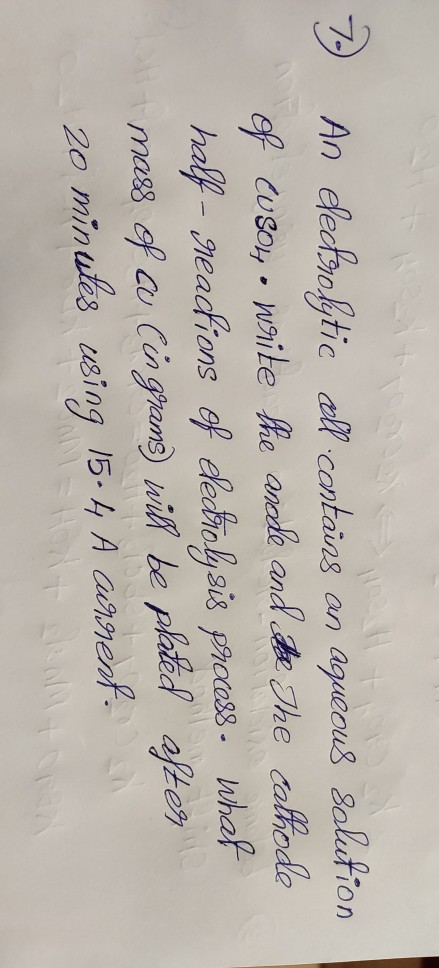 7.) An electrolytic cell contains an aqueous solution
of CuSO4. write the anode and The cathode
half-reactions of electrolysis process. what
mass of cu (in grams) will be plated after
20 minutes using 15.4 A current.